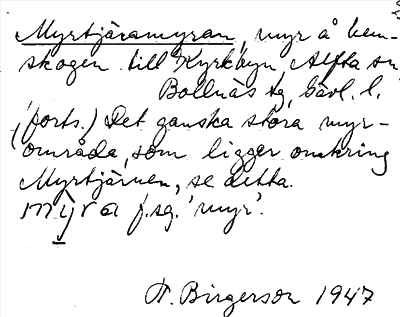 Myrtjäramyran, myr å hem-
skogen till Kyrkbyn Alfta sn
Bollnäs tg, Gävl. l.
(forts.) Det ganska stora myr-
område, som ligger omkring
Myrtjärnen, se detta.
mȳra f.sg. 'myr'.
H. Birgerson 1947